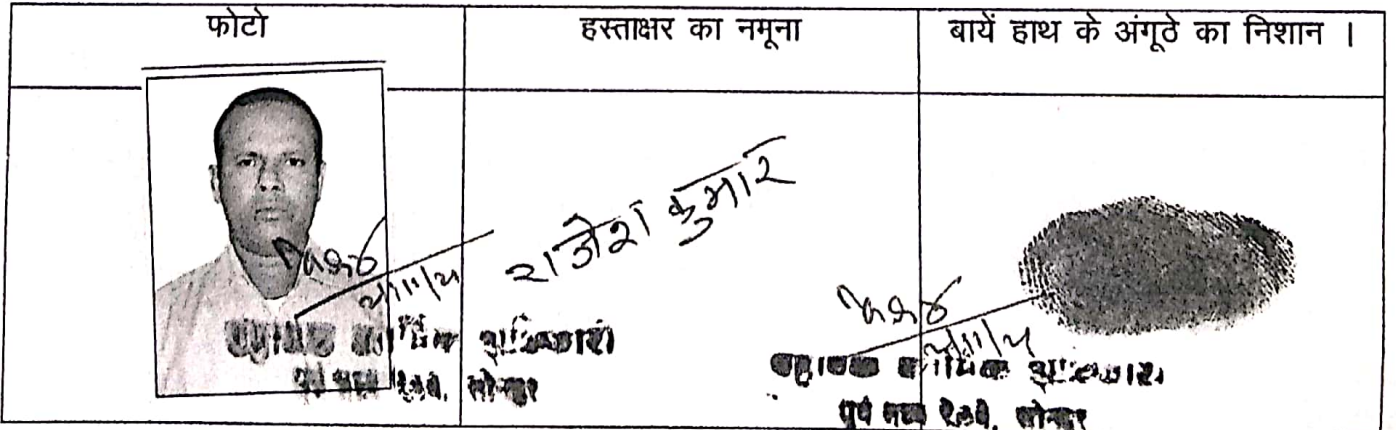 फोटो
हस्ताक्षर का नमूना
बायें हाथ के अंगूठे का निशान ।
राजेश कुमार
कार्मिक अधिकारी
पूर्व मध्य रेलवे, सोनपुर
सहायक कार्मिक अधिकारी
पूर्व मध्य रेलवे, सोनपुर